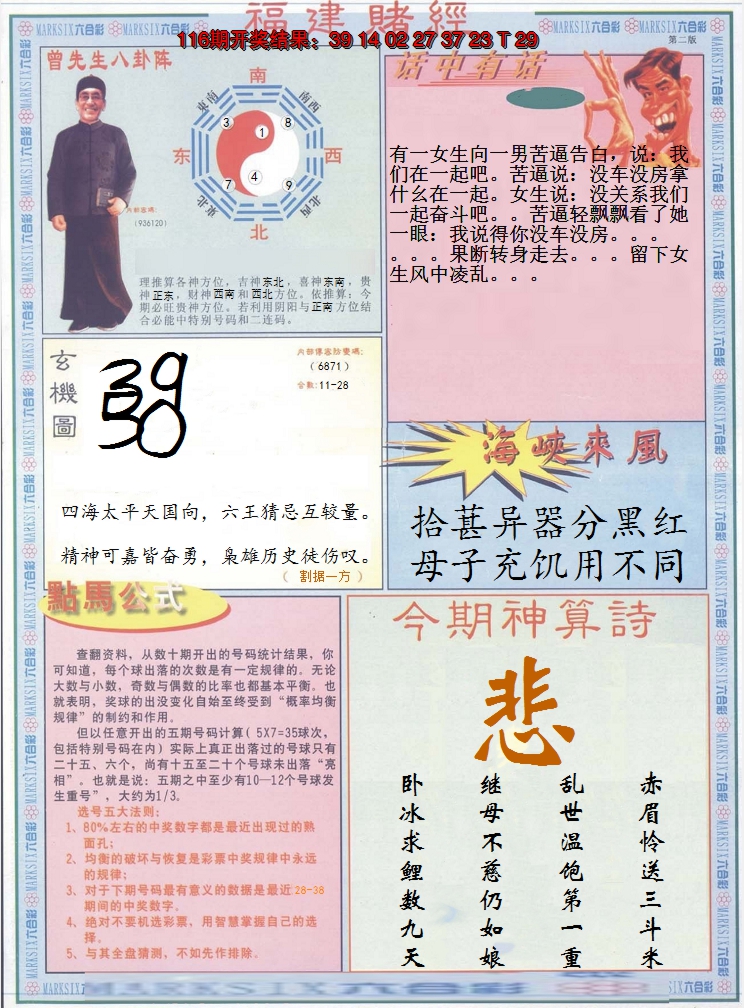 福建賭經
116期开奖结果：39 14 02 27 37 23 T 29
第二版
曾先生八卦阵
南
东南
南西
东
西
東北
北西
北
3
1
8
7
4
9
内部密碼：
（936120）
理推算各神方位，吉神东北，喜神东南，贵
神正东，财神西南和西北方位。依推算：今
期必旺贵神方位。若利用阴阳与正南方位结
合必能中特别号码和二连码。
话中有话
有一女生向一男苦逼告白，说：我
们在一起吧。苦逼说：没车没房拿
什么在一起。女生说：没关系我们
一起奋斗吧。。苦逼轻飘飘看了她
一眼：我说得你没车没房。。。
。。。果断转身走去。。。留下女
生风中凌乱。。。
玄機圖
（6871）
合數:11-28
四海太平天国向，六王猜忌互较量。
精神可嘉皆奋勇，枭雄历史徒伤叹。
（ 割据一方 ）
海峽來風
拾葚异器分黑红
母子充饥用不同
點馬公式
查翻资料，从数十期开出的号码统计结果，你
可知道，每个球出落的次数是有一定规律的。无论
大数与小数，奇数与偶数的比率也都基本平衡。也
就表明，奖球的出没变化自始至终受到“概率均衡
规律”的制约和作用。
但以任意开出的五期号码计算( 5X7=35球次，
包括特别号码在内) 实际上真正出落过的号球只有
二十五、六个，尚有十五至二十个号球未出落“亮
相”。也就是说：五期之中至少有10—12个号球发
生重号”，大约为1/3。
选号五大法则：
1、80%左右的中奖数字都是最近出现过的熟
面孔；
2、均衡的破坏与恢复是彩票中奖规律中永远
的规律；
3、对于下期号码最有意义的数据是最近28-38
期间的中奖数字。
4、绝对不要机选彩票，用智慧掌握自己的选
择。
5、与其全盘猜测，不如先作排除。
今期神算詩
悲
赤眉怜送三斗米
乱世温饱第一重
继母不慈仍如娘
卧冰求鲤数九天
MARKSIX六合彩